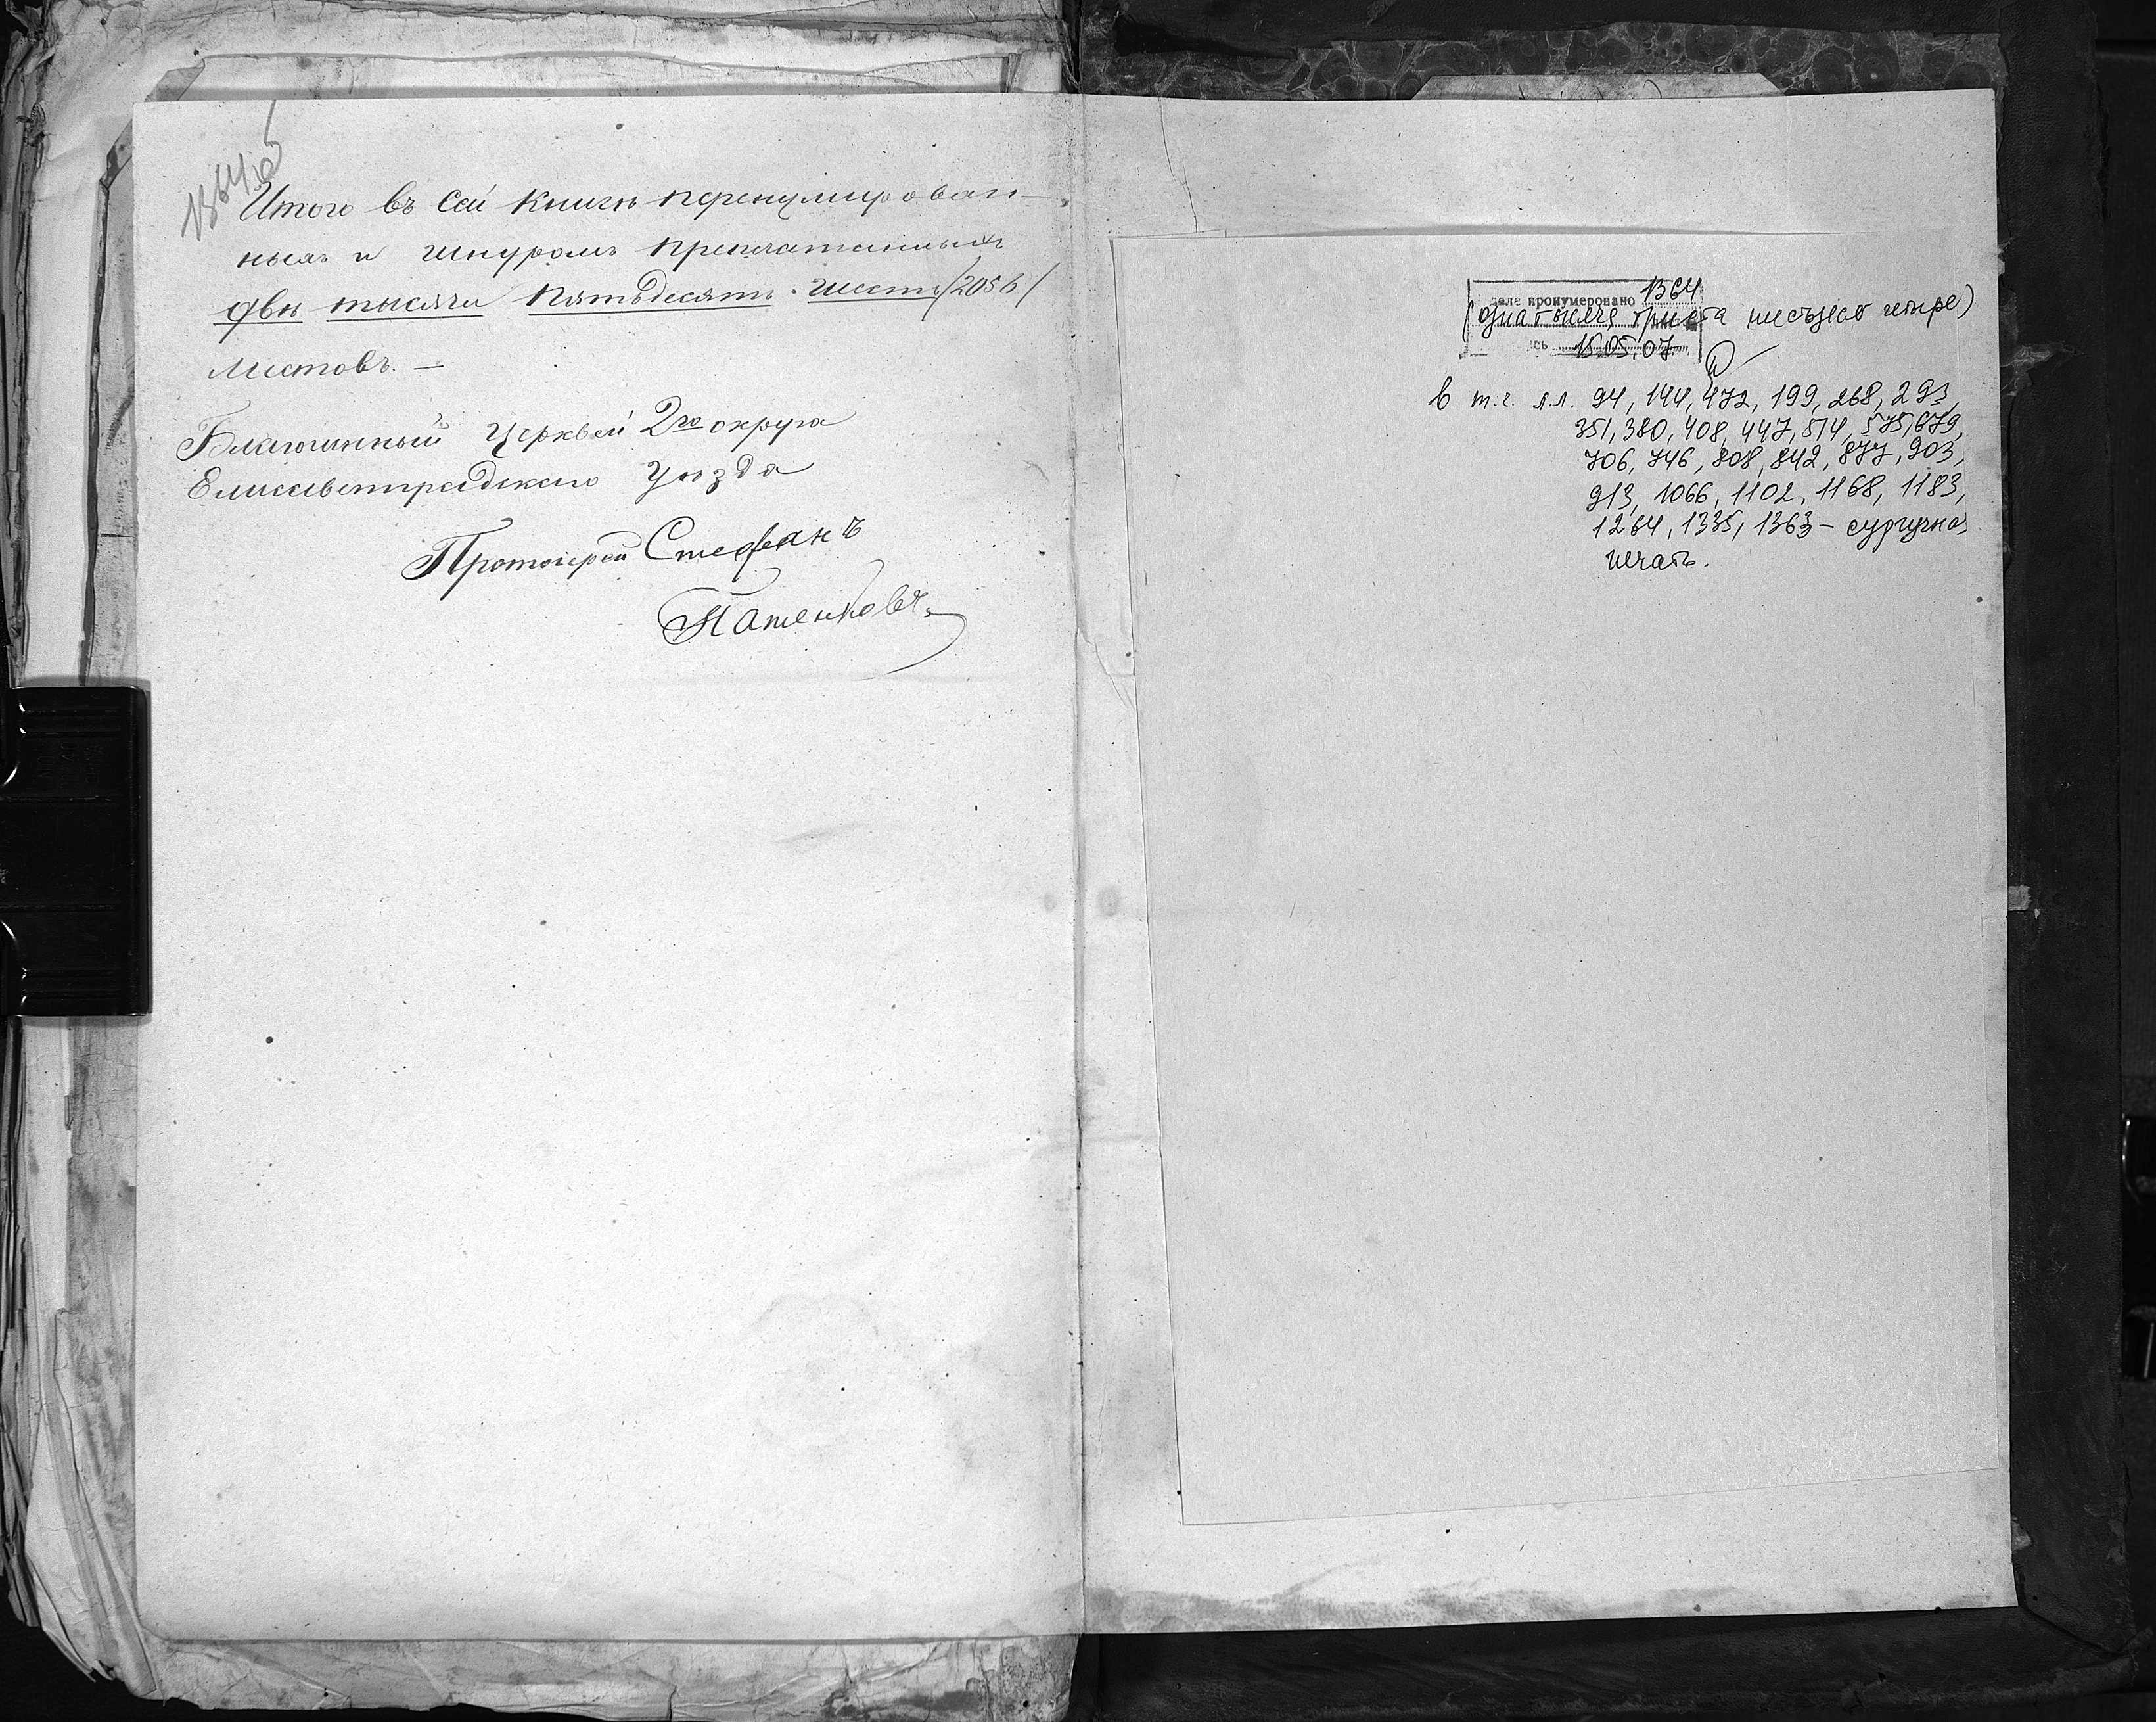 1364об
Итого въ сей книгѣ перенумирован-
ныхъ и шнуромъ припечатанныхъ
двѣ тысячи пятьдесятъ шесть /2056/
листовъ. —
Благочинный Церквей 2го округа
Елисаветградскаго Уѣзда
Протоиерей Стефанъ
Патенковъ
деле пронумеровано 1364
(одна тысяча триста шестьдесят четыре)
сь 15.05.07
в т.ч. л.л. 94, 144, 472, 199, 268, 293,
351, 380, 408, 447, 514, 575, 679,
706, 746, 808, 842, 877, 903,
913, 1066, 1102, 1168, 1183,
1264, 1335, 1363 – сургучная
печать.